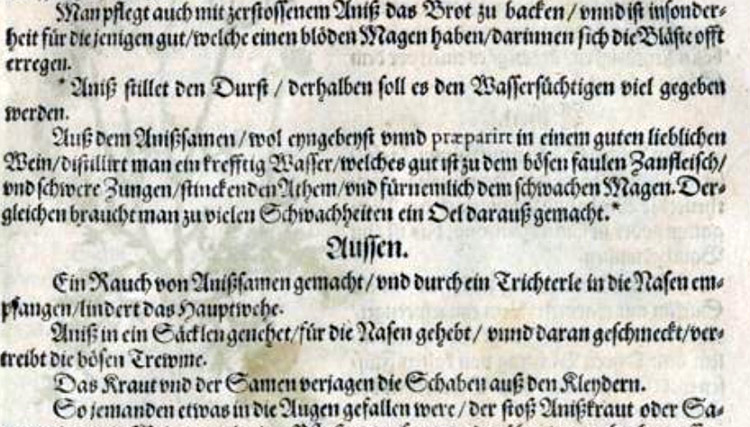 Man pflegt auch mit zerstossenem Aniß das Brot zu backen / vnnd ist insonder-
heit für die jenigen gut/welche einen blöden Magen haben/darinnen sich die Bläste offt
erregen.
* Aniß stillet den Durst / derhalben soll es den Wassersüchtigen viel gegeben
werden.
Auß dem Anißsamen / wol eyngebeyst vnnd præparirt in einem guten lieblichen
Wein/distillirt man ein krefftig Wasser/welches gut ist zu dem bösen faulen Zanfleisch/
vnd schwere Zungen/stinckenden Athem/vnd fürnemlich dem schwachen Magen. Der-
gleichen braucht man zu vielen Schwachheiten ein Oel darauß gemacht.*
Aussen.
Ein Rauch von Anißsamen gemacht / vnd durch ein Trichterle in die Nasen em-
pfangen/lindert das Hauptwehe.
Aniß in ein Säcklen genehet/für die Nasen gehebt / vnnd daran geschmeckt/ver-
treibt die bösen Trewme.
Das Kraut vnd der Samen verjagen die Schaben auß den Kleydern.
So jemanden etwas in die Augen gefallen were / der stoß Anißkraut oder Sa-